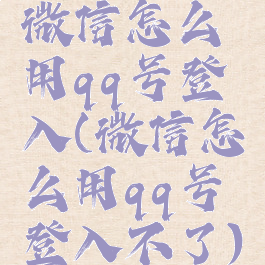 微信怎么
用qq号登
入(微信怎
么用qq号
登入不了)